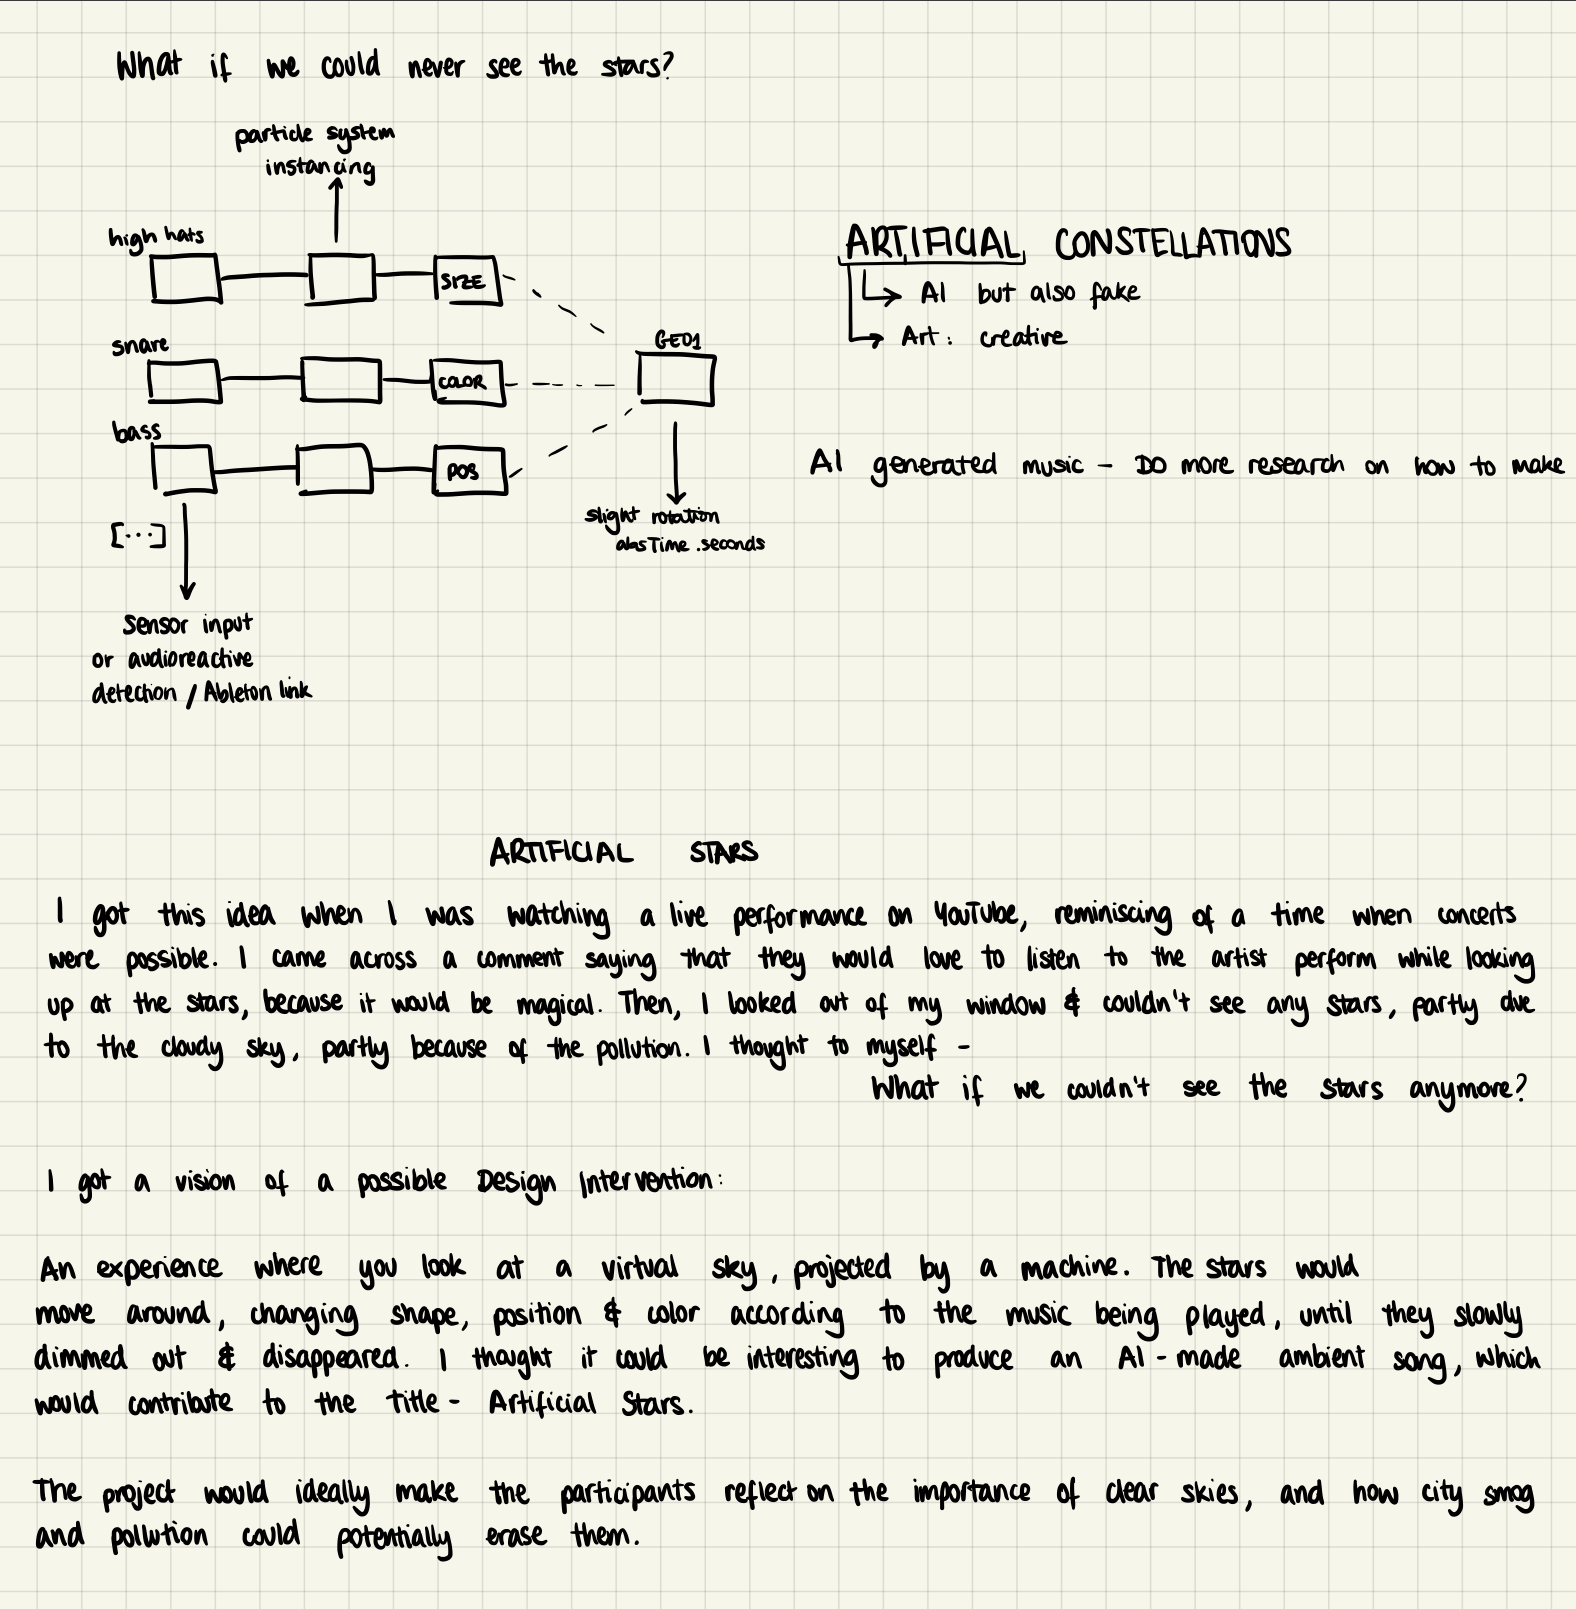 What if we could never see the stars?
particle system
instancing
high hats
SIZE
snare
COLOR
bass
POS
GEO1
slight rotation
absTime.seconds
[...]
Sensor input
or audioreactive
detection / Ableton link
ARTIFICIAL CONSTELLATIONS
AI but also fake
Art: creative
AI generated music - DO more research on how to make
ARTIFICIAL STARS
I got this idea when I was watching a live performance on YouTube, reminiscing of a time when concerts
were possible. I came across a comment saying that they would love to listen to the artist perform while looking
up at the stars, because it would be magical. Then, I looked out of my window & couldn't see any stars, partly due
to the cloudy sky, partly because of the pollution. I thought to myself -
What if we couldn't see the stars anymore?
I got a vision of a possible Design Intervention:
An experience where you look at a virtual sky, projected by a machine. The stars would
move around, changing shape, position & color according to the music being played, until they slowly
dimmed out & disappeared. I thought it could be interesting to produce an AI-made ambient song, which
would contribute to the title - Artificial Stars.
The project would ideally make the participants reflect on the importance of clear skies, and how city smog
and pollution could potentially erase them.